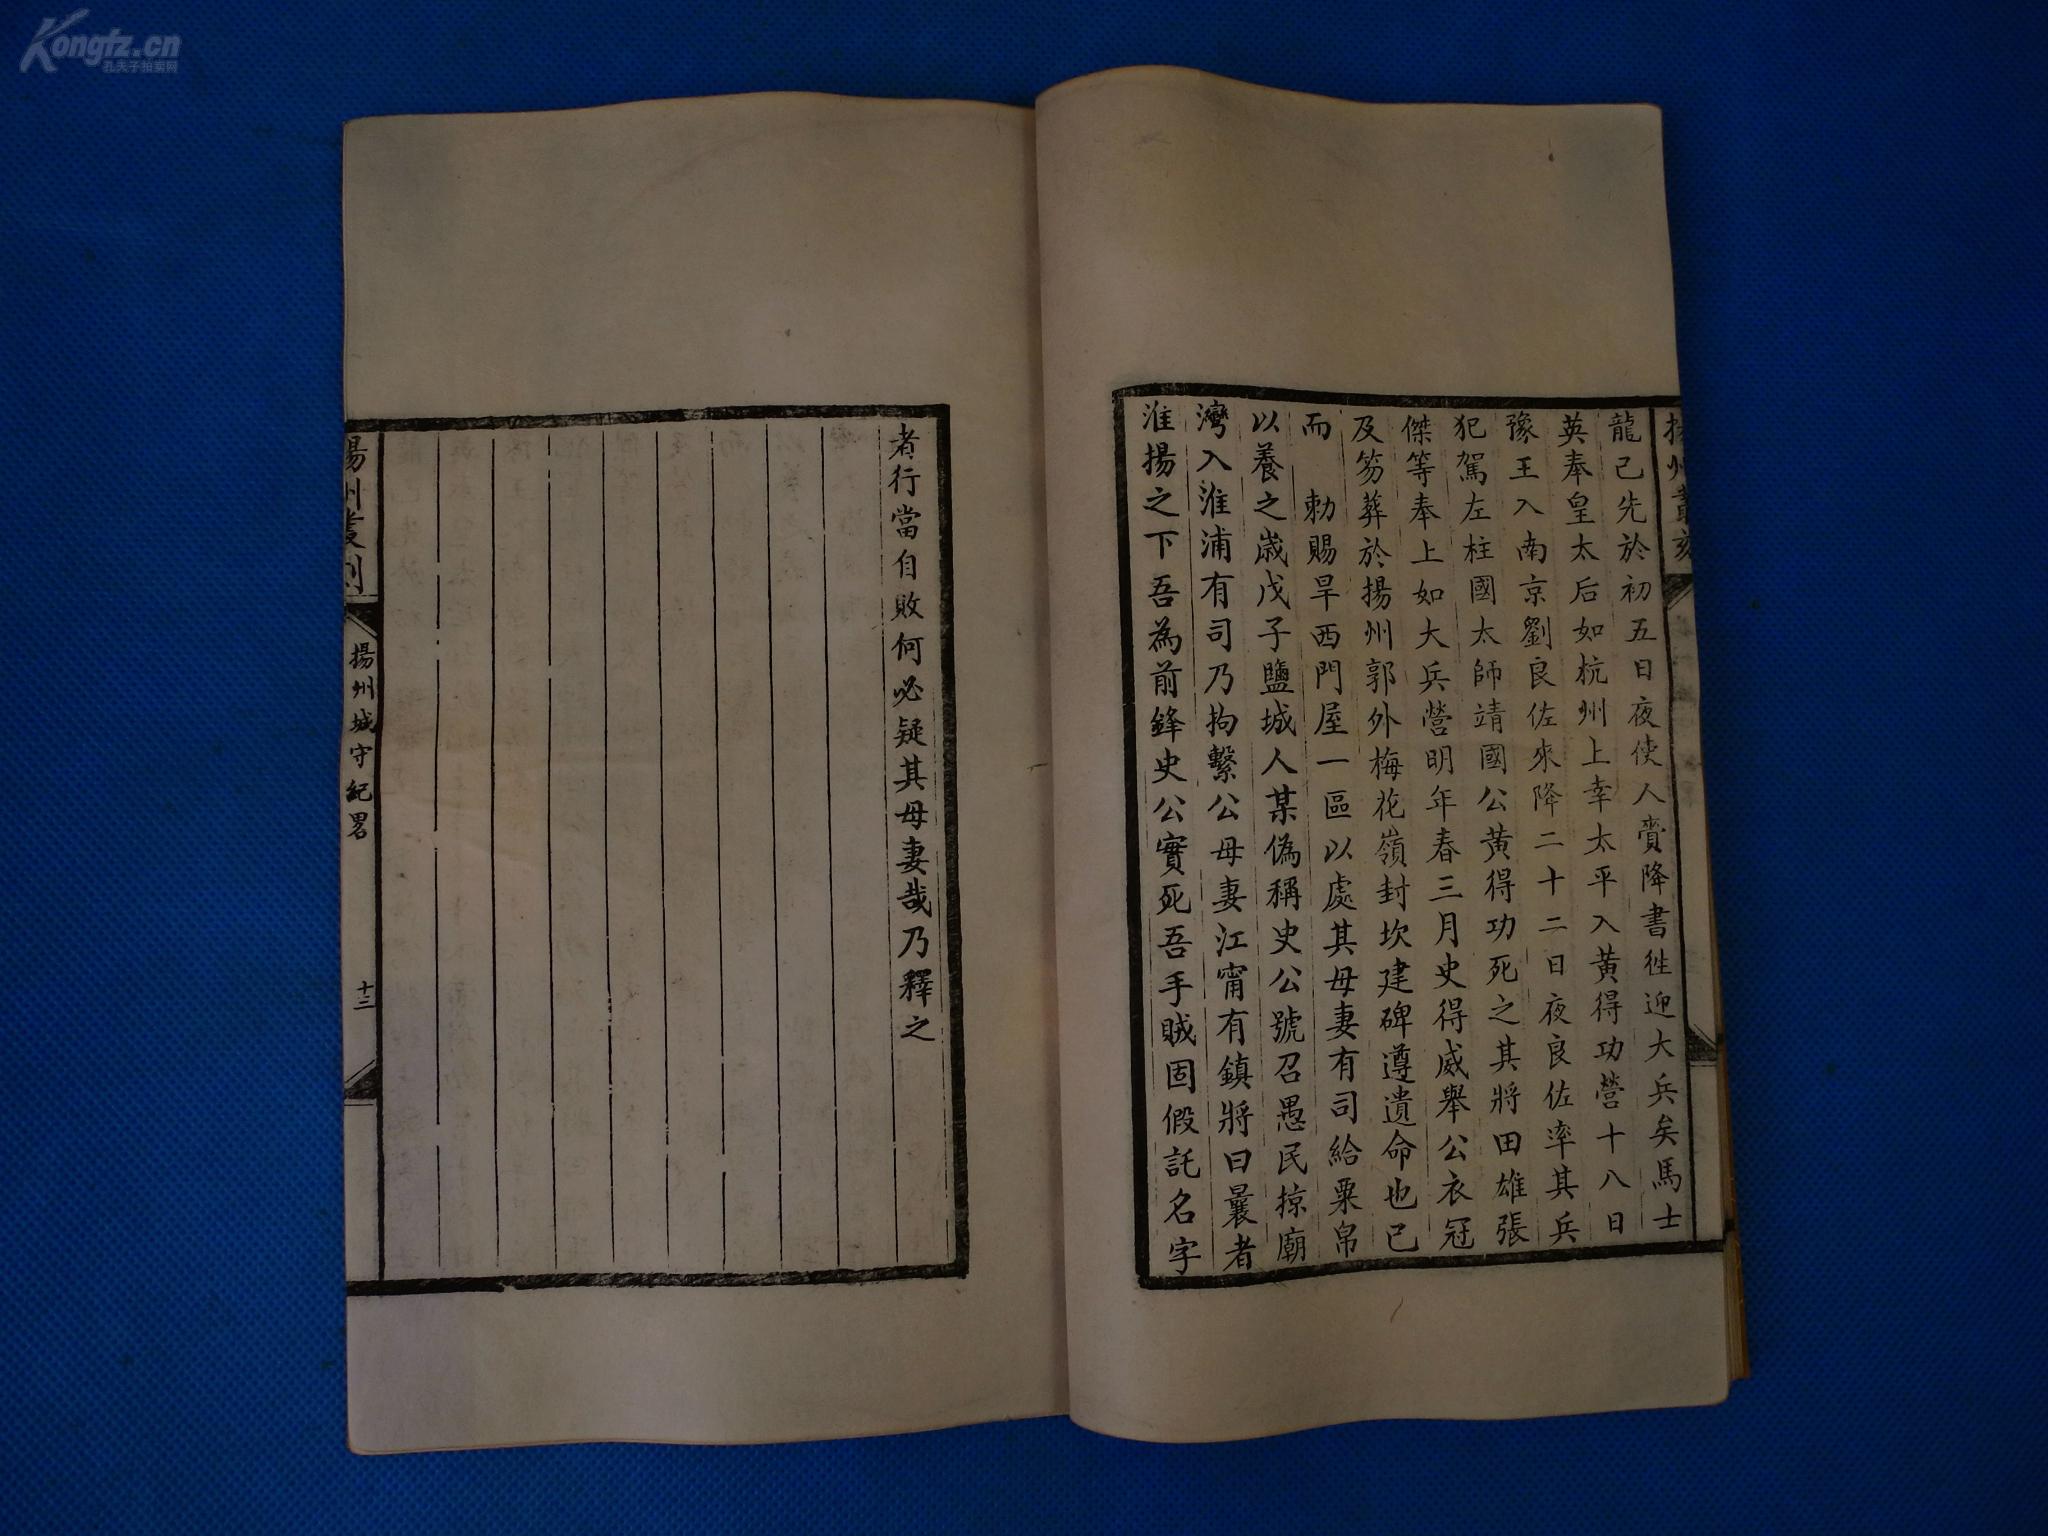 Kongfz.cn
孔夫子拍卖网
揚州叢刻
龍已先於初五日夜使人賫降書徃迎大兵矣馬士
英奉皇太后如杭州上幸太平入黄得功營十八日
豫王入南京劉良佐來降二十二日夜良佐率其兵
犯駕左柱國太師靖國公黄得功死之其將田雄張
傑等奉上如大兵營明年春三月史得威舉公衣冠
及笏葬於揚州郭外梅花嶺封坎建碑遵遺命也已
而 勅賜旱西門屋一區以處其母妻有司給粟帛
以養之歲戊子鹽城人某偽稱史公號召愚民掠廟
灣入淮浦有司乃拘繫公母妻江甯有鎮將曰曩者
淮揚之下吾為前鋒史公實死吾手賊固假託名字
者行當自敗何必疑其母妻哉乃釋之
揚州叢刻
揚州城守紀畧
十三